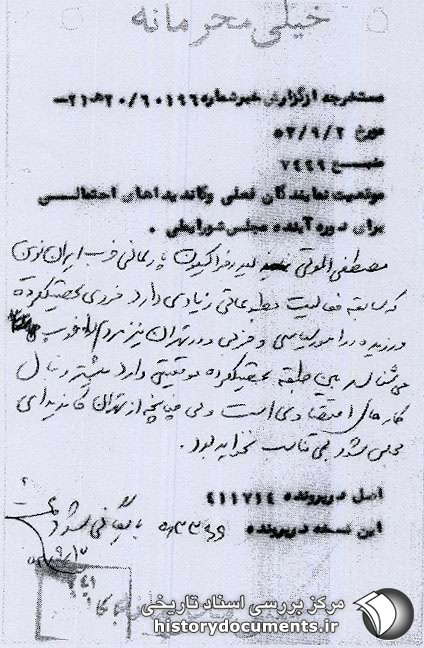 خیلی محرمانه
مستخرجه از گزارش خبر شماره ۶۰۱۹۶/ ۲۰ه‍ ۲۱–
مورخ ۵۳/۹/۲
منبع ۷۴۶۹
موقعیت نمایندگان فعلی وکاندیداهای احتمالی
برای دوره آینده مجلس شورایملی .
مصطفی الموتی لیدر فراکسیون پارلمانی حزب ایران نوین
که سابقه فعالیت مطبوعاتی زیادی دارد فردی تحصیلکرده
ورزیده در امور سیاسی و حزبی و در تهران نیز مردم او را خوب
می‌شناسند بین طبقه تحصیلکرده موقعیتی دارد بیشتر دنبال
کارهای اقتصادی است ولی چنانچه از تهران کاندیدای
مجلس شود بی تناسب نخواهد بود .
اصل در پرونده ۴۱۱۷۱۴
این نسخه در پرونده بایگانی شود
مرکز بررسی اسناد تاریخی
historydocuments.ir